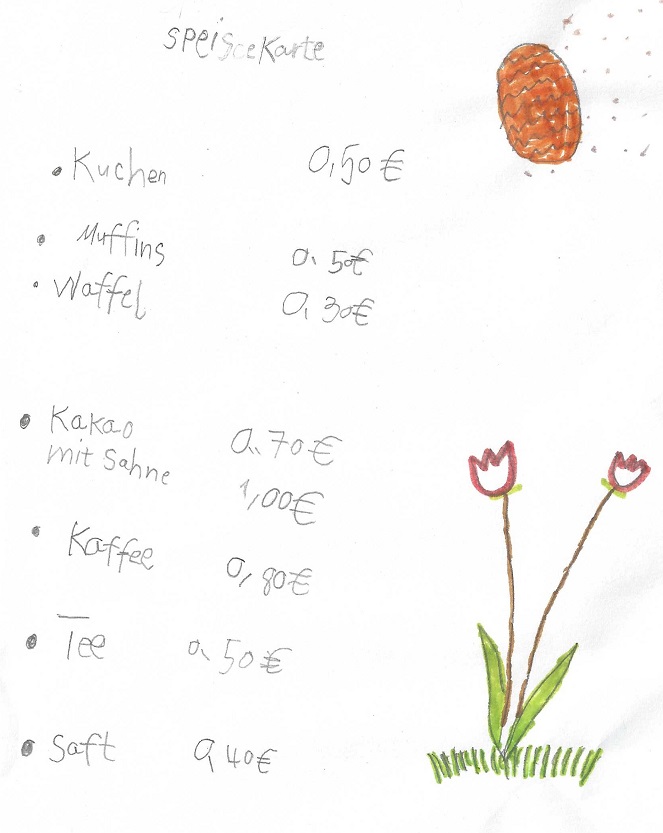 speiscekarte
• Kuchen 0,50 €
• Muffins 0,50€
• Waffel 0,30€
• Kakao 0,70€
mit Sahne 1,00€
• Kaffee 0,80€
• Tee 0,50€
• Saft 0,40€